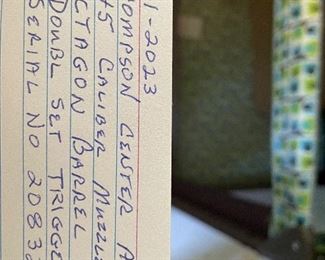 1-2023
OMPSON CENTER A
45 CALIBER MUZZL
CTAGON BARREL
DOUBL SET TRIGGE
SERIAL NO 2083